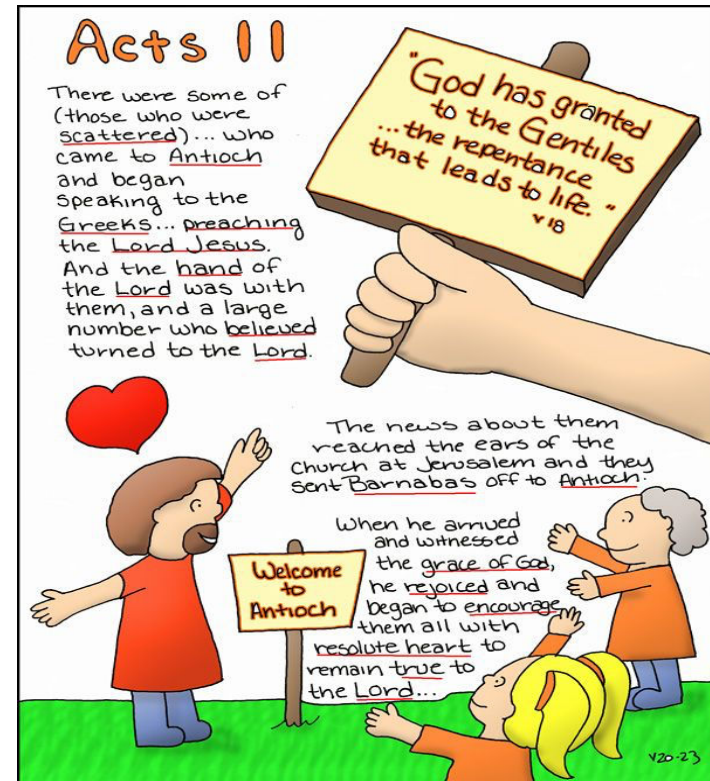 Acts 11
There were some of
(those who were
scattered)... who
came to Antioch
and began
speaking to the
Greeks... preaching
the Lord Jesus.
And the hand of
the Lord was with
them, and a large
number who believed
turned to the Lord.
"God has granted
to the Gentiles
...the repentance
that leads to life."
v 18
The news about them
reached the ears of the
church at Jerusalem and they
sent Barnabas off to Antioch.
When he arrived
and witnessed
the grace of God,
he rejoiced and
began to encourage
them all with
resolute heart to
remain true to
the Lord...
Welcome
to
Antioch
v20-23